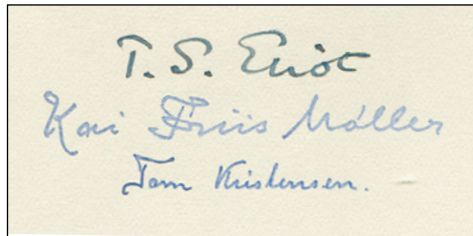 T. S. Eliot
Kai Friis Møller
Tom Kristensen.